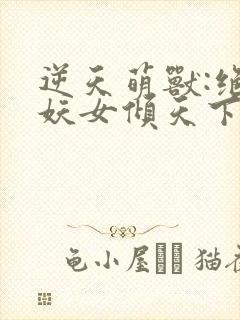 逆天萌獸:絕
妖女傾天下
龟小屋 猫衣